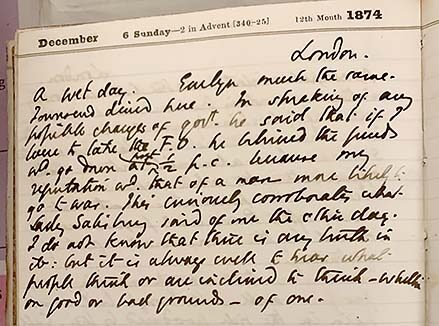 December 6 Sunday—2 in Advent [340-25] 12th Month 1874
London.
A wet day. Evelyn much the same.
Townsend dined here. In speaking of any
possible changes of govt. he said that if I
were to take the F.O. he believed the funds
wd. go down at least ½ p.c. because my
reputation wd. that of a man more likely to
go to war. This curiously corroborates what
Lady Salisbury said of me the other day.
I do not know that there is any truth in
it: but it is always well to hear what
people think or are inclined to think – whether
on good or bad grounds – of one.